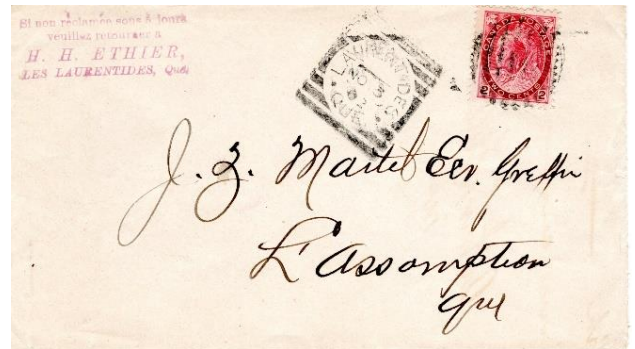 Si non réclamée sous 5 jours
veuillez retourner à
H. H. ETHIER,
LES LAURENTIDES, Que.
LAURENTIDES
NO 3
QUE.
2 TWO CENTS 2
J. Z. Martel Ecr. Greffier
L'assomption
Que